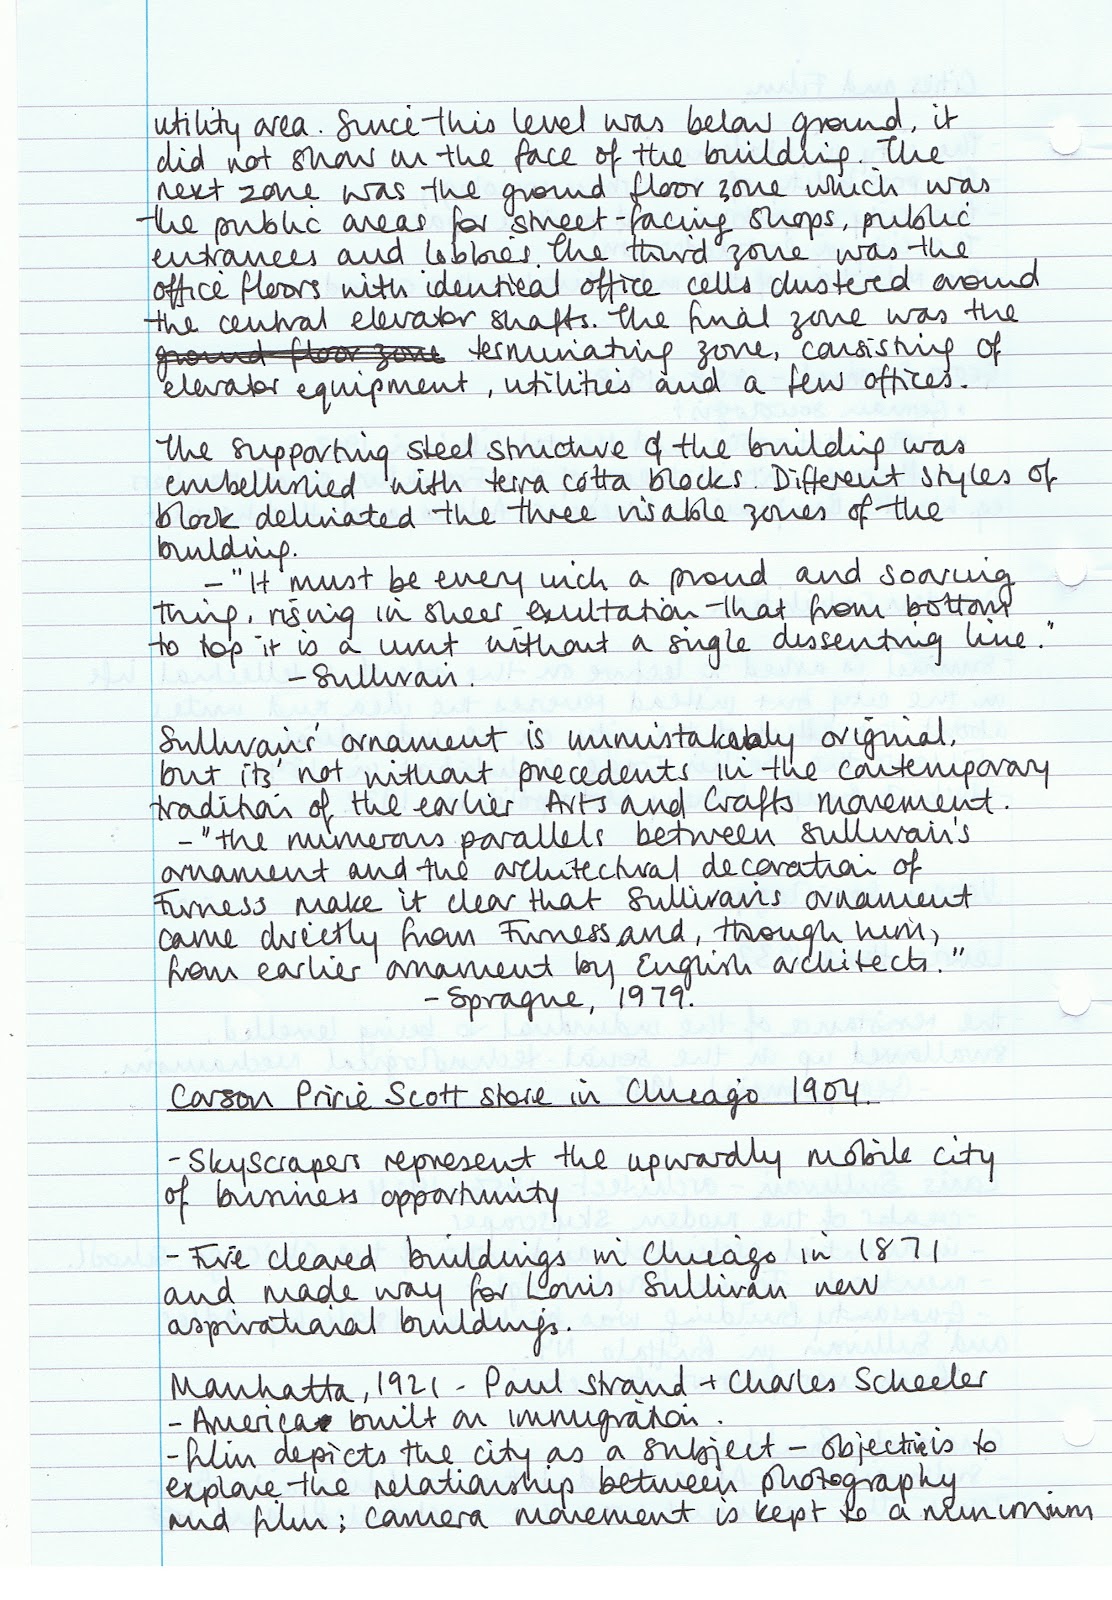 utility area. Since this level was below ground, it
did not show on the face of the building. The
next zone was the ground floor zone which was
the public areas for street-facing shops, public
entrances and lobbies. The third zone was the
office floors with identical office cells clustered around
the central elevator shafts. The final zone was the
ground floor zone terminating zone, consisting of
elevator equipment, utilities and a few offices.
The supporting steel structure of the building was
embellished with terra cotta blocks. Different styles of
block deliniated the three visable zones of the
building.
- "It must be every inch a proud and soaring
thing, rising in sheer exultation that from bottom
to top it is a unit without a single dissenting line."
- Sullivan.
Sullivan's' ornament is unmistakably original,
but its not without precedents in the contemporary
tradition of the earlier Arts and Crafts movement.
- "the numerous parallels between Sullivan's
ornament and the architectural decoration of
Furness make it clear that Sullivan's ornament
came directly from Furness and, through him,
from earlier ornament by English architects."
- Sprague, 1979.
Carson Pririe Scott store in Chicago 1904.
- Skyscrapers represent the upwardly mobile city
of business opportunity
- Fire cleared buildings in Chicago in 1871
and made way for Louis Sullivan new
aspirational buildings.
Manhatta, 1921 - Paul Strand + Charles Scheeler
- America built on immigration.
- film depicts the city as a subject - objective is to
explore the relationship between photography
and film; camera movement is kept to a minimum